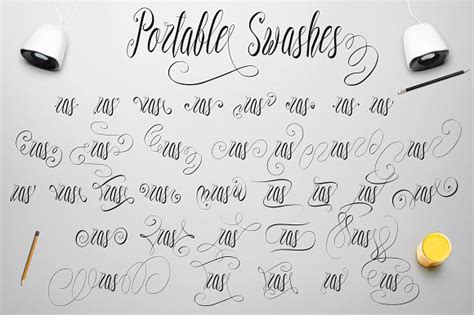 Portable Swashes
ras ras ras ras ras ras ras ras
ras ras ras ras ras ras
ras ras ras ras ras ras ras ras ras
ras ras ras ras ras
ras ras ras ras ras